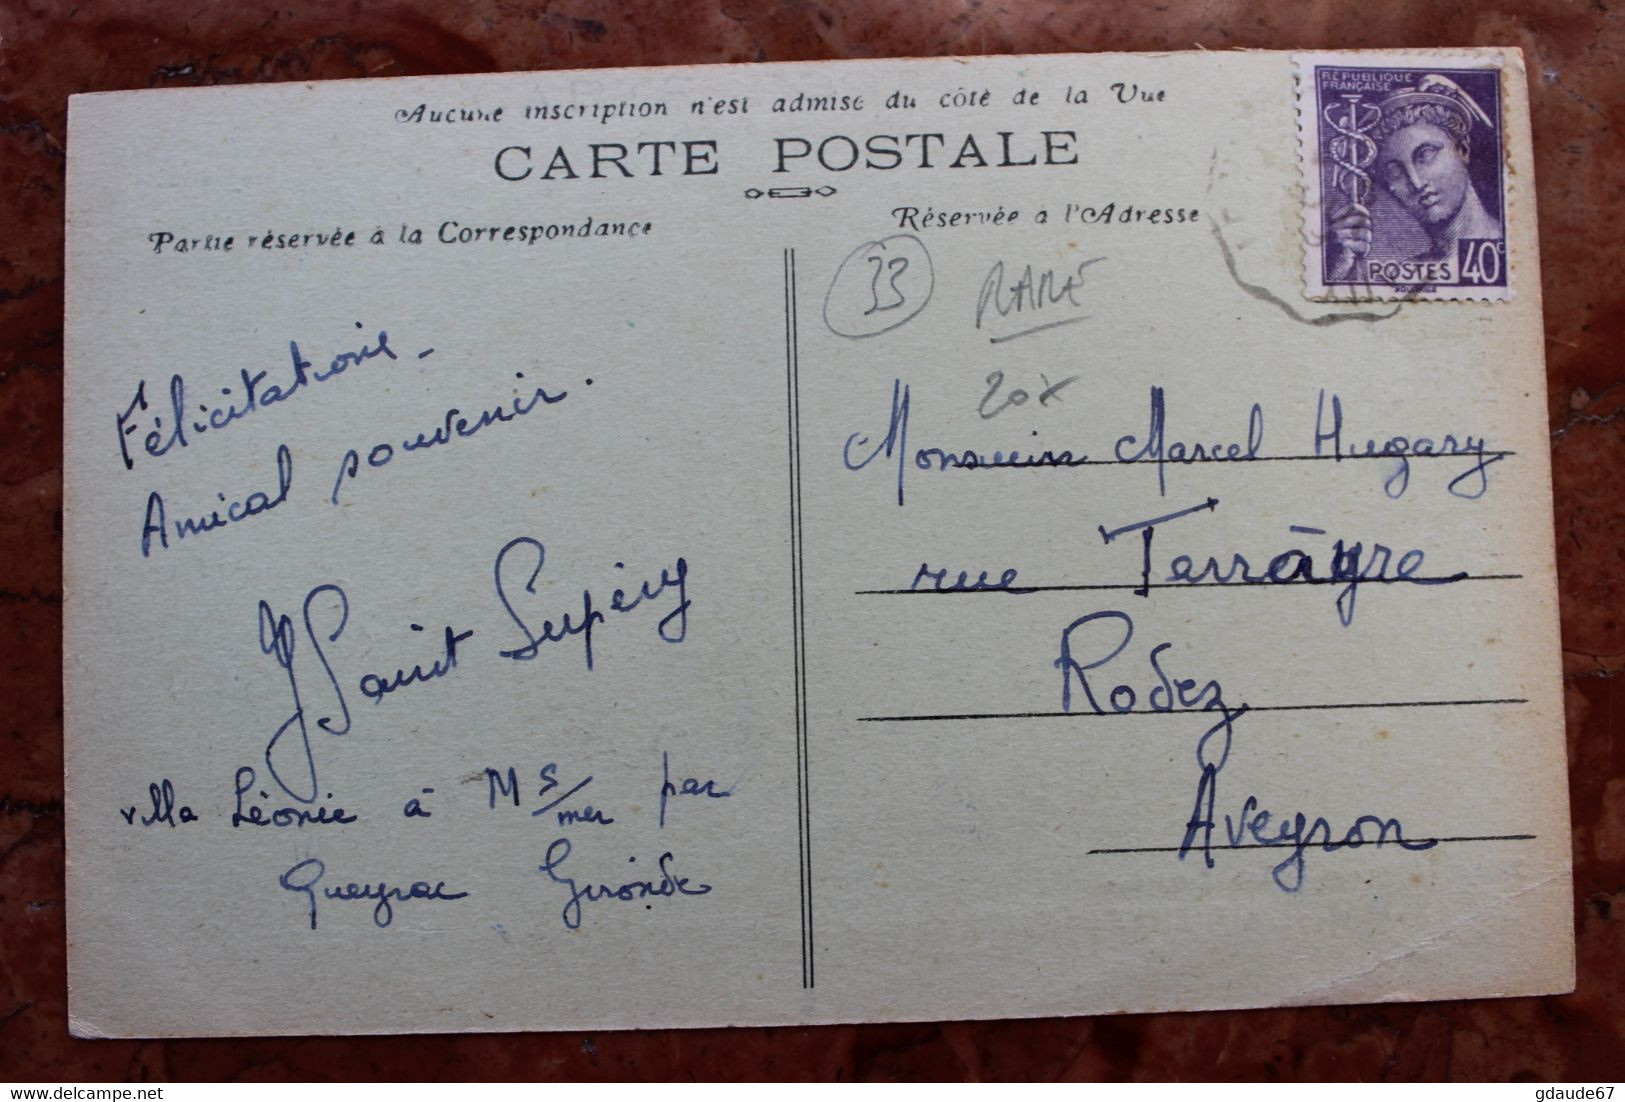 Aucune inscription n'est admise du côté de la Vue
CARTE POSTALE
Partie réservée à la Correspondance
Réservée à l'Adresse
RÉPUBLIQUE
FRANÇAISE
POSTES 40c
33
RARE
20x
Félicitations -
Amical souvenir.
J Saint Supéry
villa Léonie à M s/mer par
Queyrac Gironde
Monsieur Marcel Hugary
rue Terrāyre
Rodez
Aveyron
delcampe.net
gdaude67